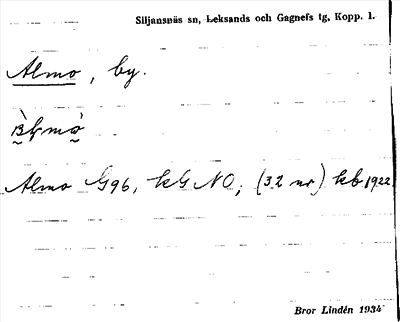 Siljansnäs sn, Leksands och Gagnefs tg, Kopp. l.
Almo, by.
Almo G96, kG NO; (32 nr) kb 1922
Bror Lindén 1934